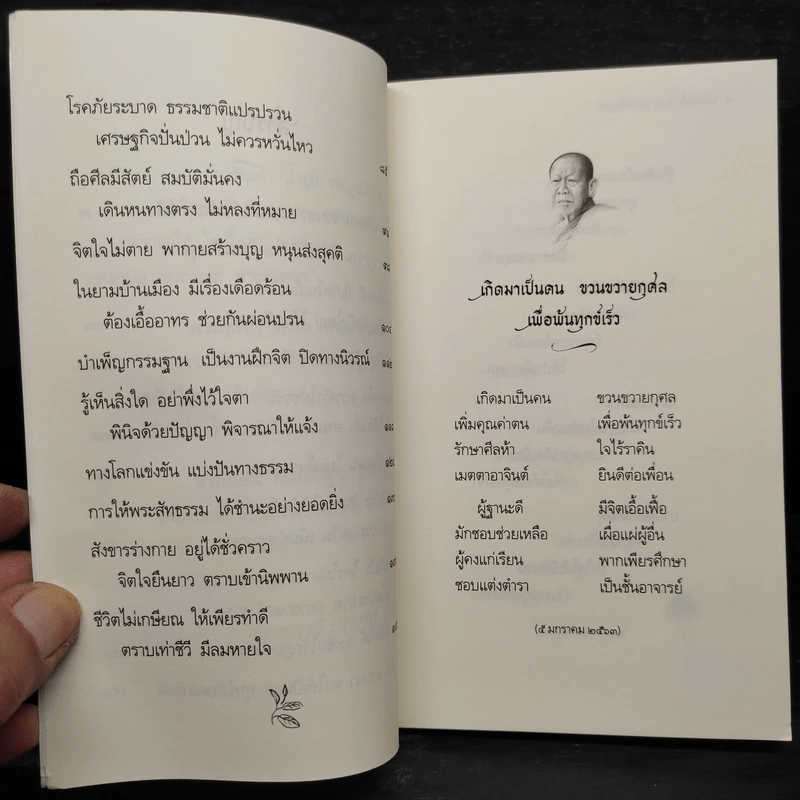 โรคภัยระบาด ธรรมชาติแปรปรวน
เศรษฐกิจปั่นป่วน ไม่ควรหวั่นไหว
ถือศีลมีสัตย์ สมบัติมั่นคง
เดินหนทางตรง ไม่หลงที่หมาย
จิตใจไม่ตาย พากายสร้างบุญ หนุนส่งสุคติ
ในยามบ้านเมือง มีเรื่องเดือดร้อน
ต้องเอื้ออาทร ช่วยกันผ่อนปรน
บำเพ็ญกรรมฐาน เป็นงานฝึกจิต ปิดทางนิวรณ์
รู้เห็นสิ่งใด อย่าพึ่งไว้ใจตา
พินิจด้วยปัญญา พิจารณาให้แจ้ง
ทางโลกแข่งขัน แบ่งปันทางธรรม
การให้พระสัทธรรม ได้ชำนะอย่างยอดยิ่ง
สังขารร่างกาย อยู่ได้ชั่วคราว
จิตใจยืนยาว ตราบเข้านิพพาน
ชีวิตไม่เกษียณ ให้เพียรทำดี
ตราบเท่าชีวี มีลมหายใจ
เกิดมาเป็นคน ขวนขวายกุศล
เพื่อพ้นทุกข์เร็ว
เกิดมาเป็นคน ขวนขวายกุศล
เพิ่มคุณค่าตน เพื่อพ้นทุกข์เร็ว
รักษาศีลห้า ใจไร้ราคิน
เมตตาอาจินต์ ยินดีต่อเพื่อน
ผู้ฐานะดี มีจิตเอื้อเฟื้อ
มักชอบช่วยเหลือ เผื่อแผ่ผู้อื่น
ผู้คงแก่เรียน พากเพียรศึกษา
ชอบแต่งตำรา เป็นชั้นอาจารย์
(๕ มกราคม ๒๕๖๓)